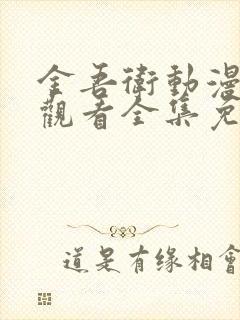 金吾衛動漫
觀看全集免
道是有缘相會